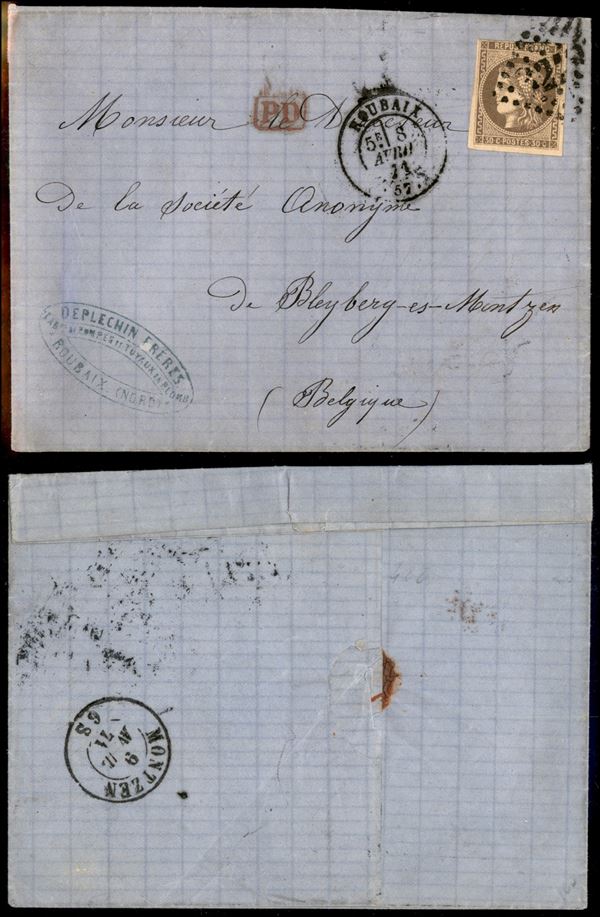 REPUB FRANC
30 C POSTES 30 C
PD
ROUBAIX
5E 8
AVRIL
71
57
Monsieur le Directeur
De la Société Anonyme
de Bleyberg-es-Montzen
(Belgique)
DEPLECHIN FRÈRES
POMPES ET TUYAUX EN PLOMB
ROUBAIX (NORD)
MONTZEN
9
71
6S